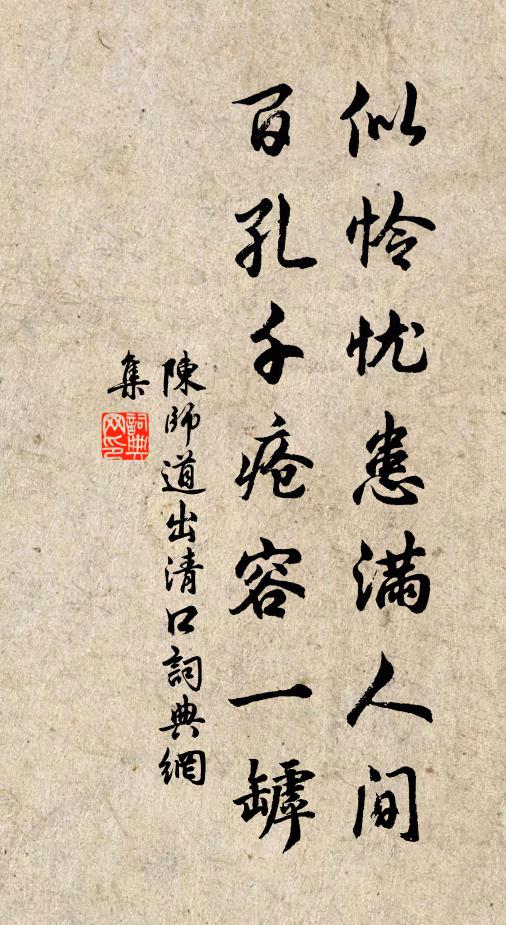 似怜忧患满人间
百孔千疮容一罅
陳師道出清口詞典網
集
詞典網印